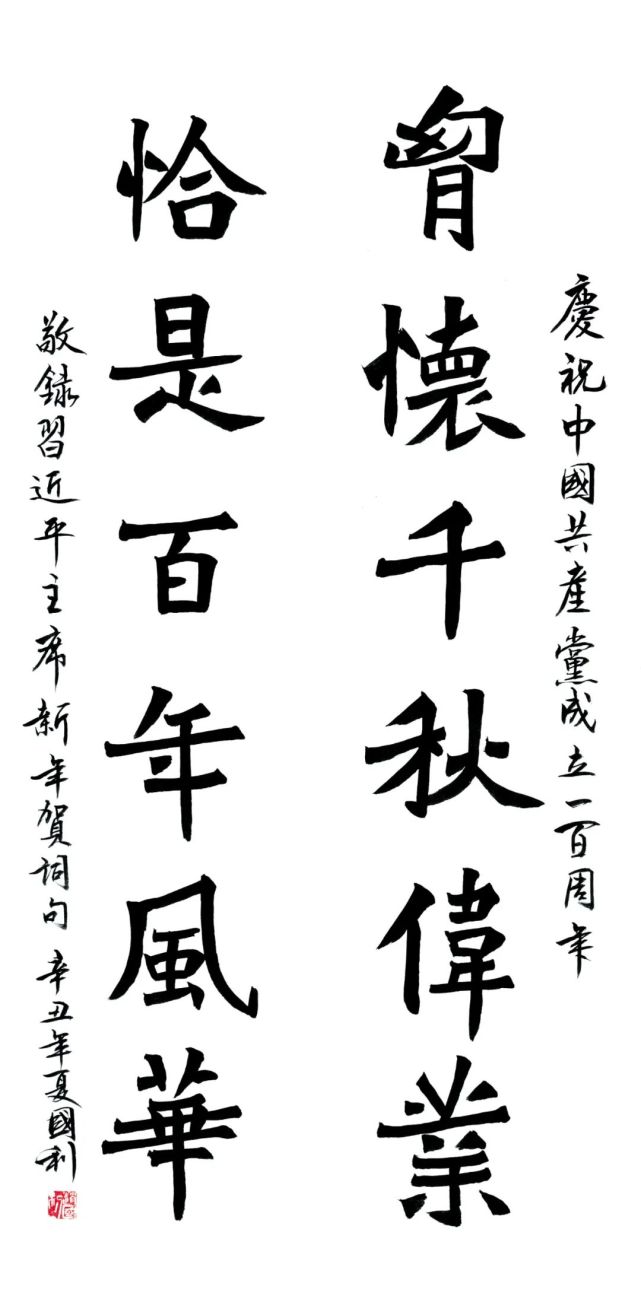 慶祝中國共產黨成立一百周年
胷懷千秋偉業
恰是百年風華
敬錄習近平主席新年賀詞句 辛丑年夏國利